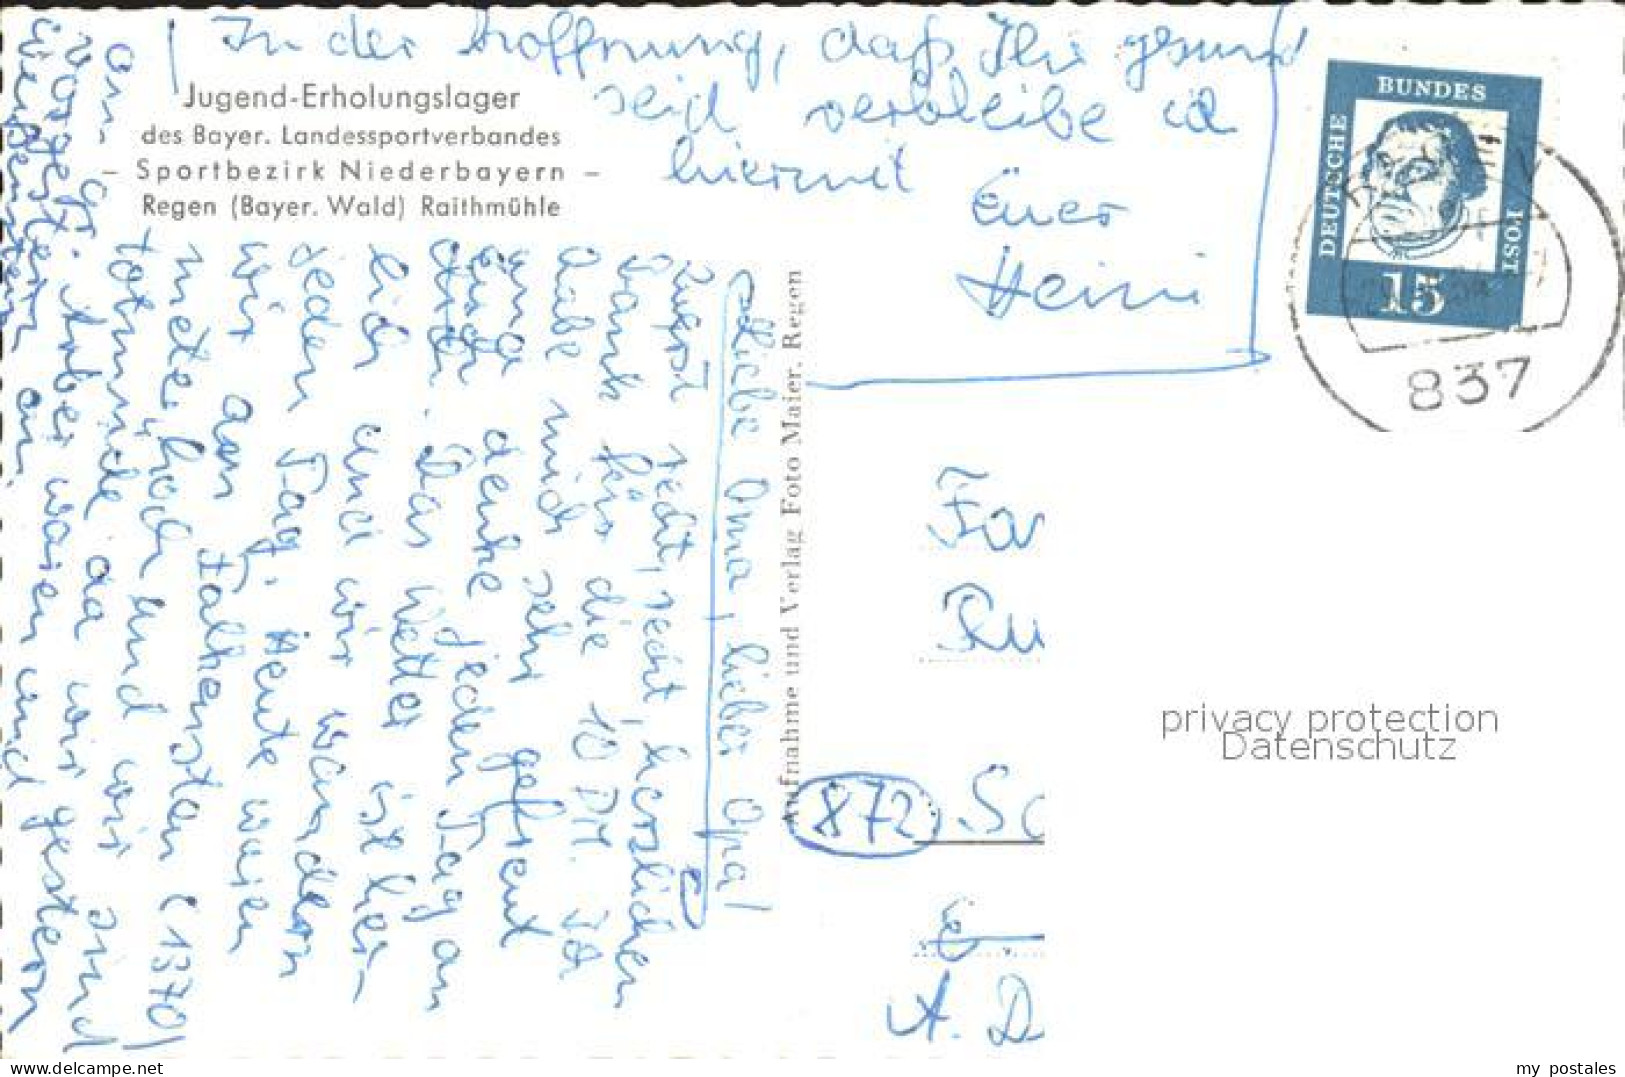 Jugend-Erholungslager
des Bayer. Landessportverbandes
– Sportbezirk Niederbayern –
Regen (Bayer. Wald) Raithmühle
Aufnahme und Verlag Foto Maier, Regen
Liebe Oma, lieber Opa!
Zuerst recht, recht herzlichen
Dank für die 10 DM. Ich
habe mich sehr gefreut
und denke jeden Tag an
Euch. Das Wetter ist herr-
lich und wir wandern
jeden Tag. Heute waren
wir am Falkenstein (1370)
meter hoch und wir sind
gestern
waren und
In der Hoffnung, daß Ihr gesund
seid verbleibe ich
hiermit
Euer
Heini
DEUTSCHE
BUNDES
POST
15
837
Fa
Ru
872
Sc
A. D
privacy protection
Datenschutz
www.delcampe.net
my_postales